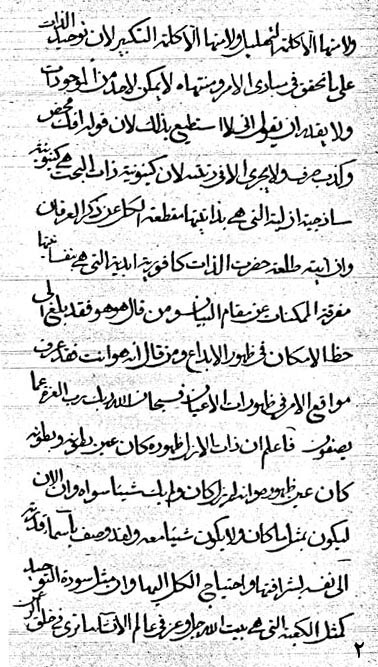 ولا منها الا كلمة التهليل ولا منها الا كلمة التكبير لان توحيد الذات
على ما تحقق فى مبادى الامر ومنتهاه لا يمكن لاحد من الموجودات
ولا يقدر ان يقول انى لا استطيع بذلك لان قوله افك محض
وكذب صرف ولا يجرى الا فى رتبته لان كينونية ذات البحت هى كينونية
ساذجية ازلية التى هى بذاتيتها مقطعة الكل عن ذكر العرفان
وان انية طلعة حضرت الذات كافورية ابدية التى هى بنفسانيتها
مفرقة الممكنات عن مقام البيان ومن قال هو هو فقد بلغ الى
حظ الامكان فى ظهور الابداع ومن قال انه هو انت فقد عرف
مواقع الامر فى ظهورات الاعيان فسبحان الله ربك رب العزة عما
يصفون فاعلم ان ذات الازل ظهوره كان عين بطونه وبطونه
كان عين ظهوره وانه لم يزل كان ولم يك شيئا سواه وان الان
ليكون بمثل ما كان ولا يكون شيئا معه ولقد وصف باسماء قدسية
الى نفسه لشرافتها واحتياج الكل اليها واذ مثل سورة التوحيد
كمثل الكعبة التى هى بيت الله جل وعز فى عالم الا ترى فى خلق
٢